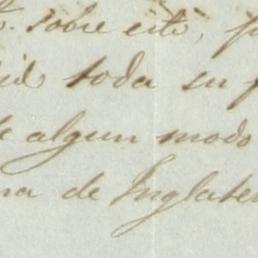 sobre este,
toda su
algun modo
de Inglater